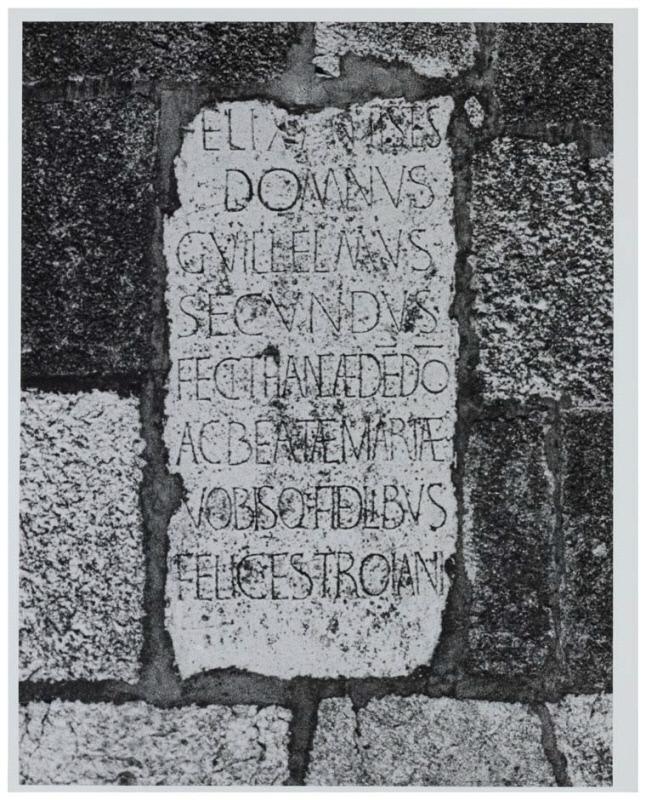 ELIX
DOMNVS
GVILLELMVS
SECVNDVS
FECITHANCÆDĒDŌ
ACBEATÆMARIÆ
VOBISQ:FIDELIBVS
FELICESTROIANI